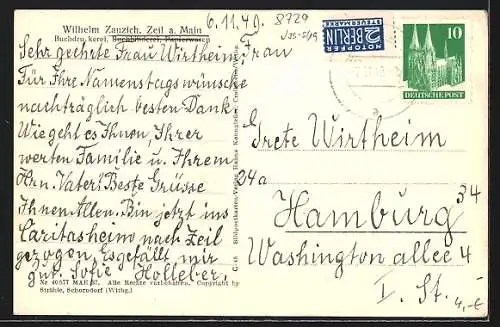 Wilhelm Zanzich. Zeil a. Main
6.11.49. 8729
Buchdruckerei, Buchbinderei, Papierwaren
Sehr geehrte Frau Wirtheim!
Für Ihre Namenstagswünsche
nachträglich besten Dank.
Wie geht es Ihnen, Ihrer
werten Familie u. Ihrem
Hrn. Vater? Beste Grüsse
Ihnen Allen. Bin jetzt ins
Caritasheim nach Zeil
gezogen. Es gefällt mir
gut. Sofie Holleber.
Nr 40577 Alle Rechte vorbehalten. Copyright by
Strähle, Schorndorf (Wttbg.)
NOTOPFER
2 BERLIN
STEUERMARKE
10
DEUTSCHE POST
Frau
Grete Wirtheim
24a
Hamburg 34
Washington allee 4
I. St.
4,-€